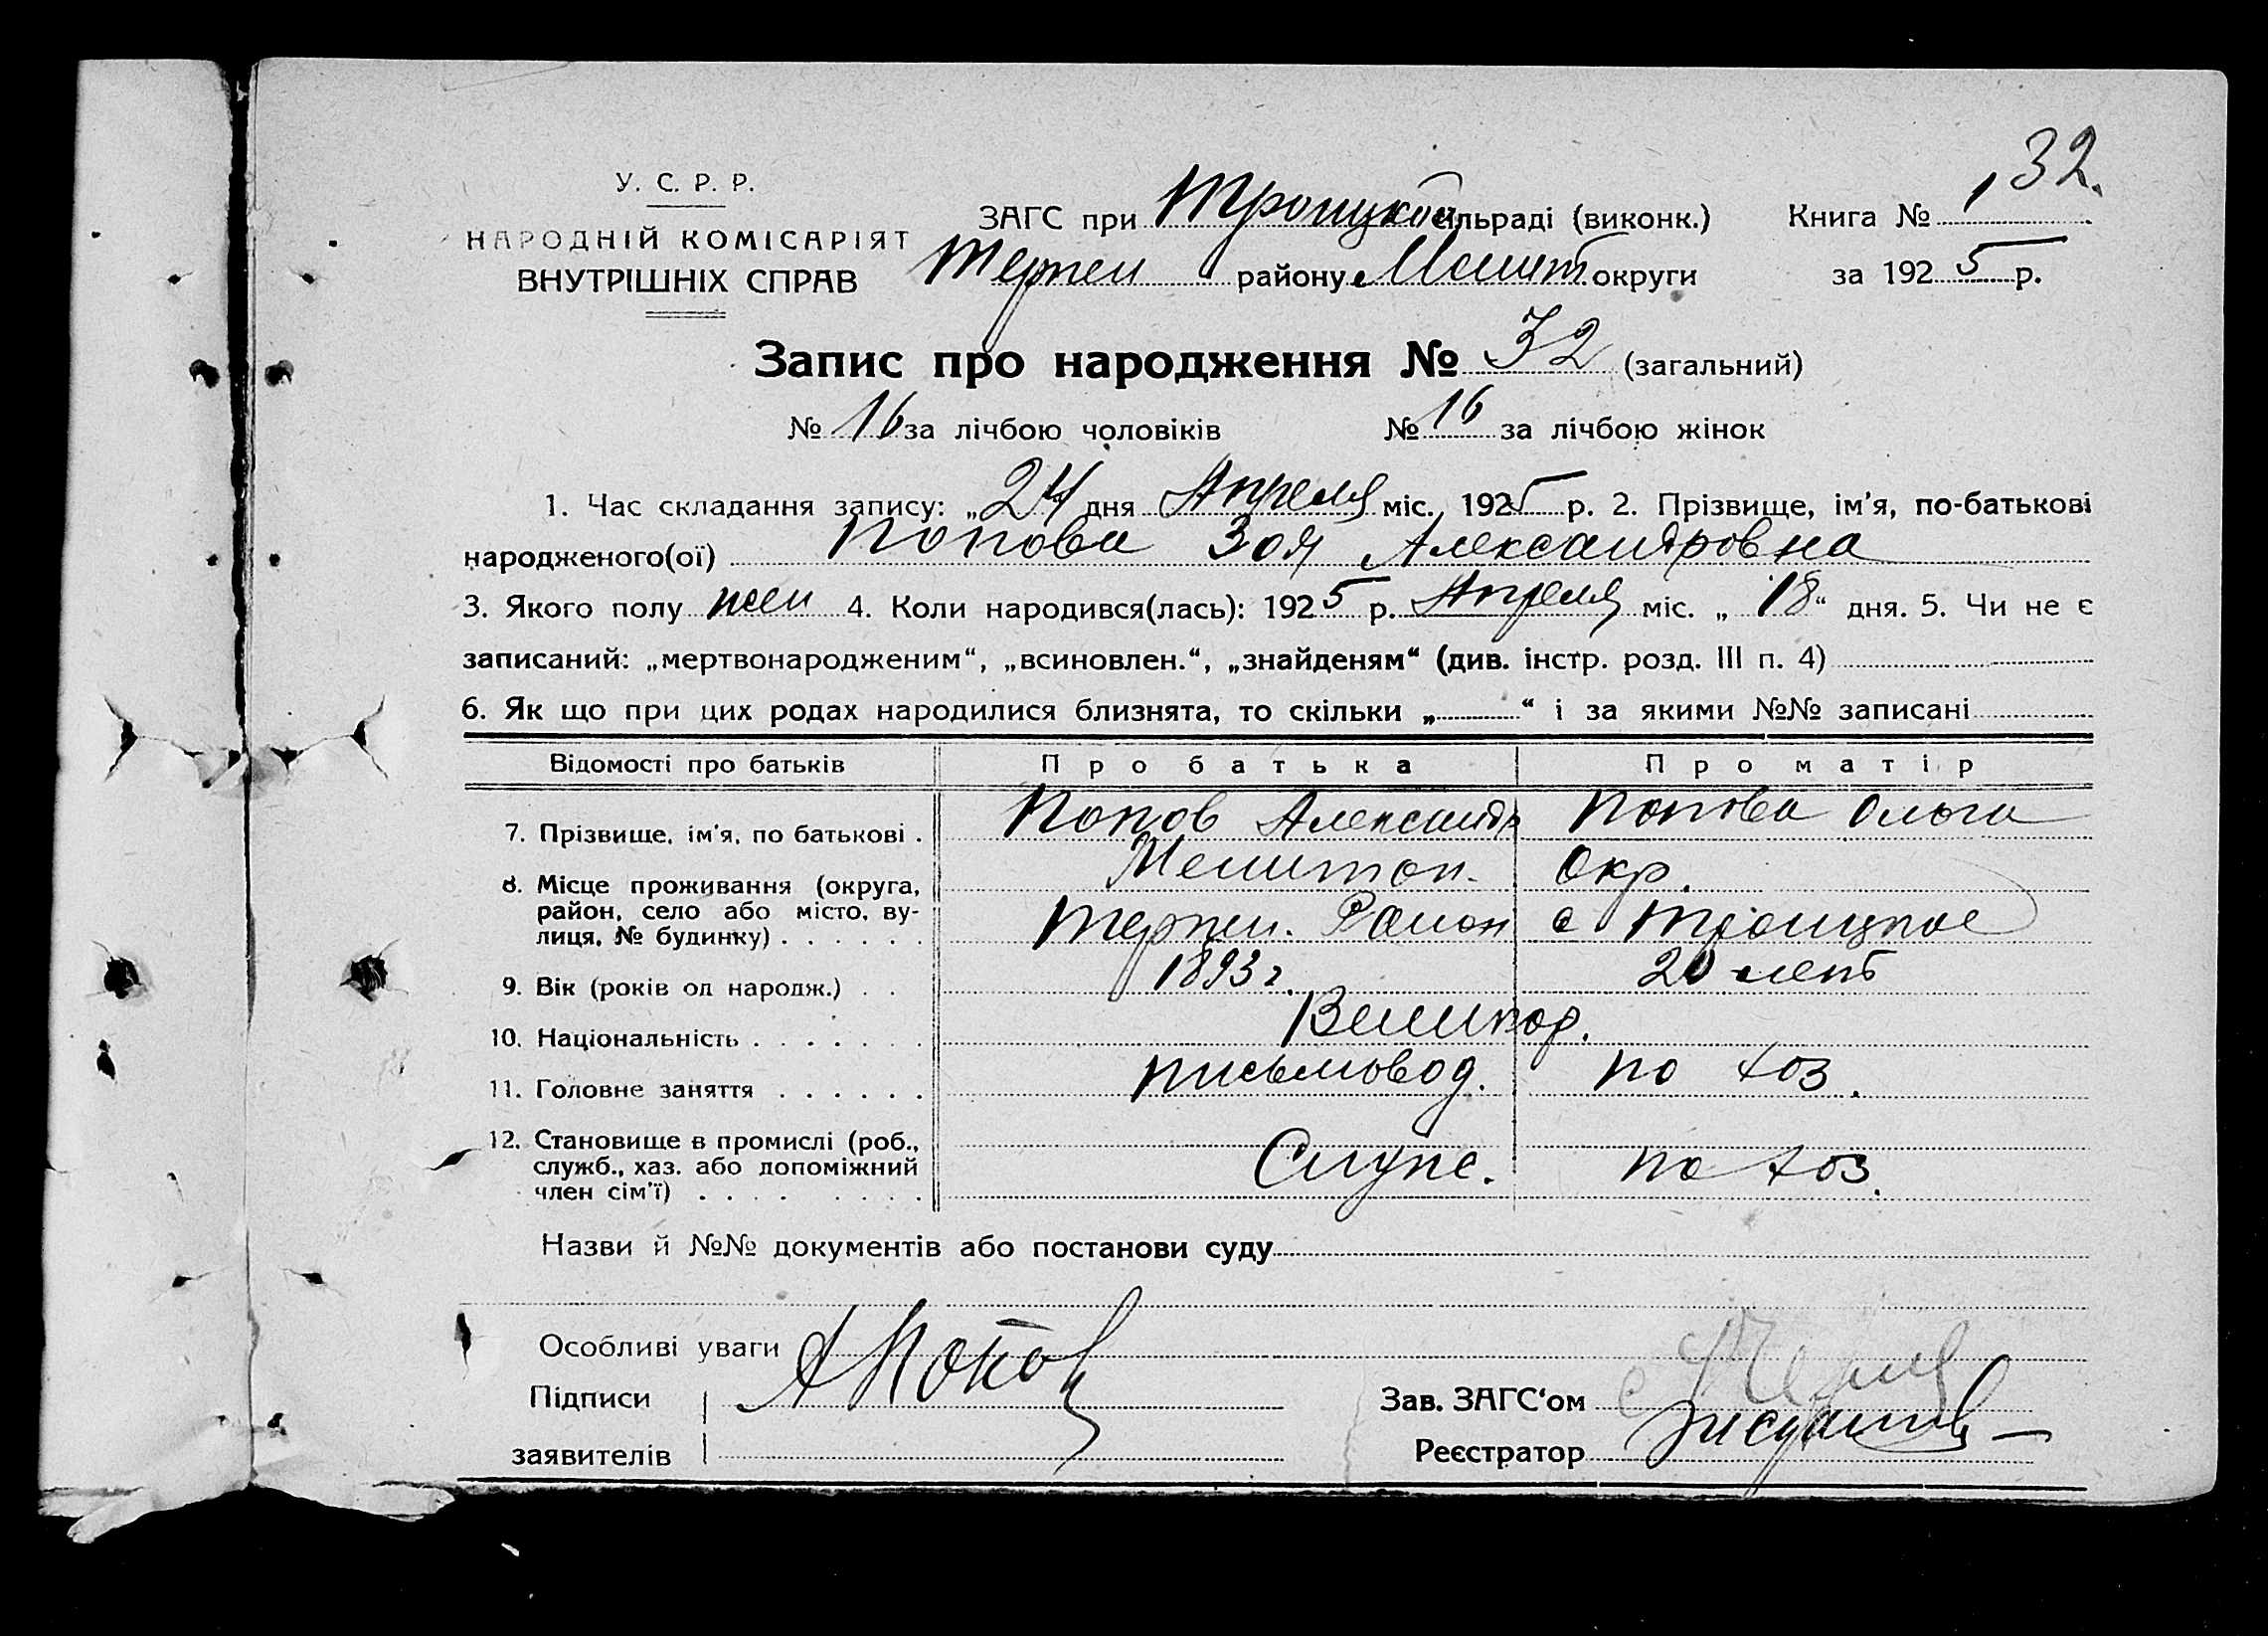 32.
У. С. Р. Р.
НАРОДНІЙ КОМІСАРІЯТ
ВНУТРІШНІХ СПРАВ
ЗАГС при Троицкой сільраді (виконк.) Книга № 1
Терпен району Мелит округи за 1925 р.
Запис про народження № 32 (загальний)
№ 16 за лічбою чоловіків № 16 за лічбою жінок
1. Час складання запису: „24 дня Апреля міс. 1925 р. 2. Прізвище, ім'я, по-батькові
народженого(ої) Попова Зоя Александровна
3. Якого полу жен 4. Коли народився(лась): 1925 р. Апреля міс. „18“ дня. 5. Чи не є
записаний: „мертвонародженим“, „всиновлен.“, „знайденям“ (див. інстр. розд. III п. 4)
6. Як що при цих родах народилися близнята, то скільки „ “ і за якими №№ записані
Відомості про батьків Про батька Про матір
7. Прізвище, ім'я, по батькові . Попов Александр Попова Ольга
8. Місце проживання (округа, Мелитоп. Окр.
район, село або місто, ву-
лиця, № будинку) . . . . . . Терпен. Район с Троицкое
9. Вік (років од народж.) . . 1893 г. 20 лет
10. Національність . . . . . . . Великор.
11. Головне заняття . . . . . . письмовод. по хоз.
12. Становище в промислі (роб.,
служб., хаз. або допоміжний
член сім'ї) . . . . . . . . Служ. по хоз.
Назви й №№ документів або постанови суду
Особливі уваги
Підписи АПопов Зав. ЗАГС‘ом
заявителів Реєстратор